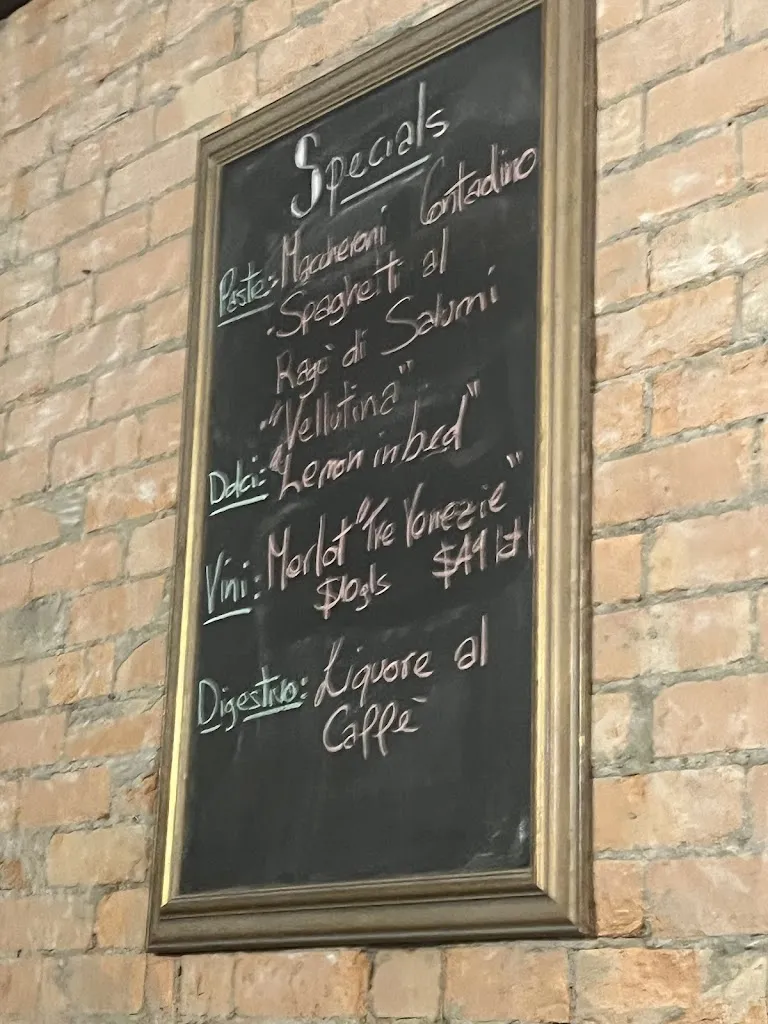 Specials
Paste: Maccheroni Contadino
·Spaghetti al
Ragù di Salumi
·"Vellutina"
Dolci: "Lemon in bed"
Vini: Merlot "Tre Venezie"
$10gls $49 lt
Digestivo: Liquore al
Caffè